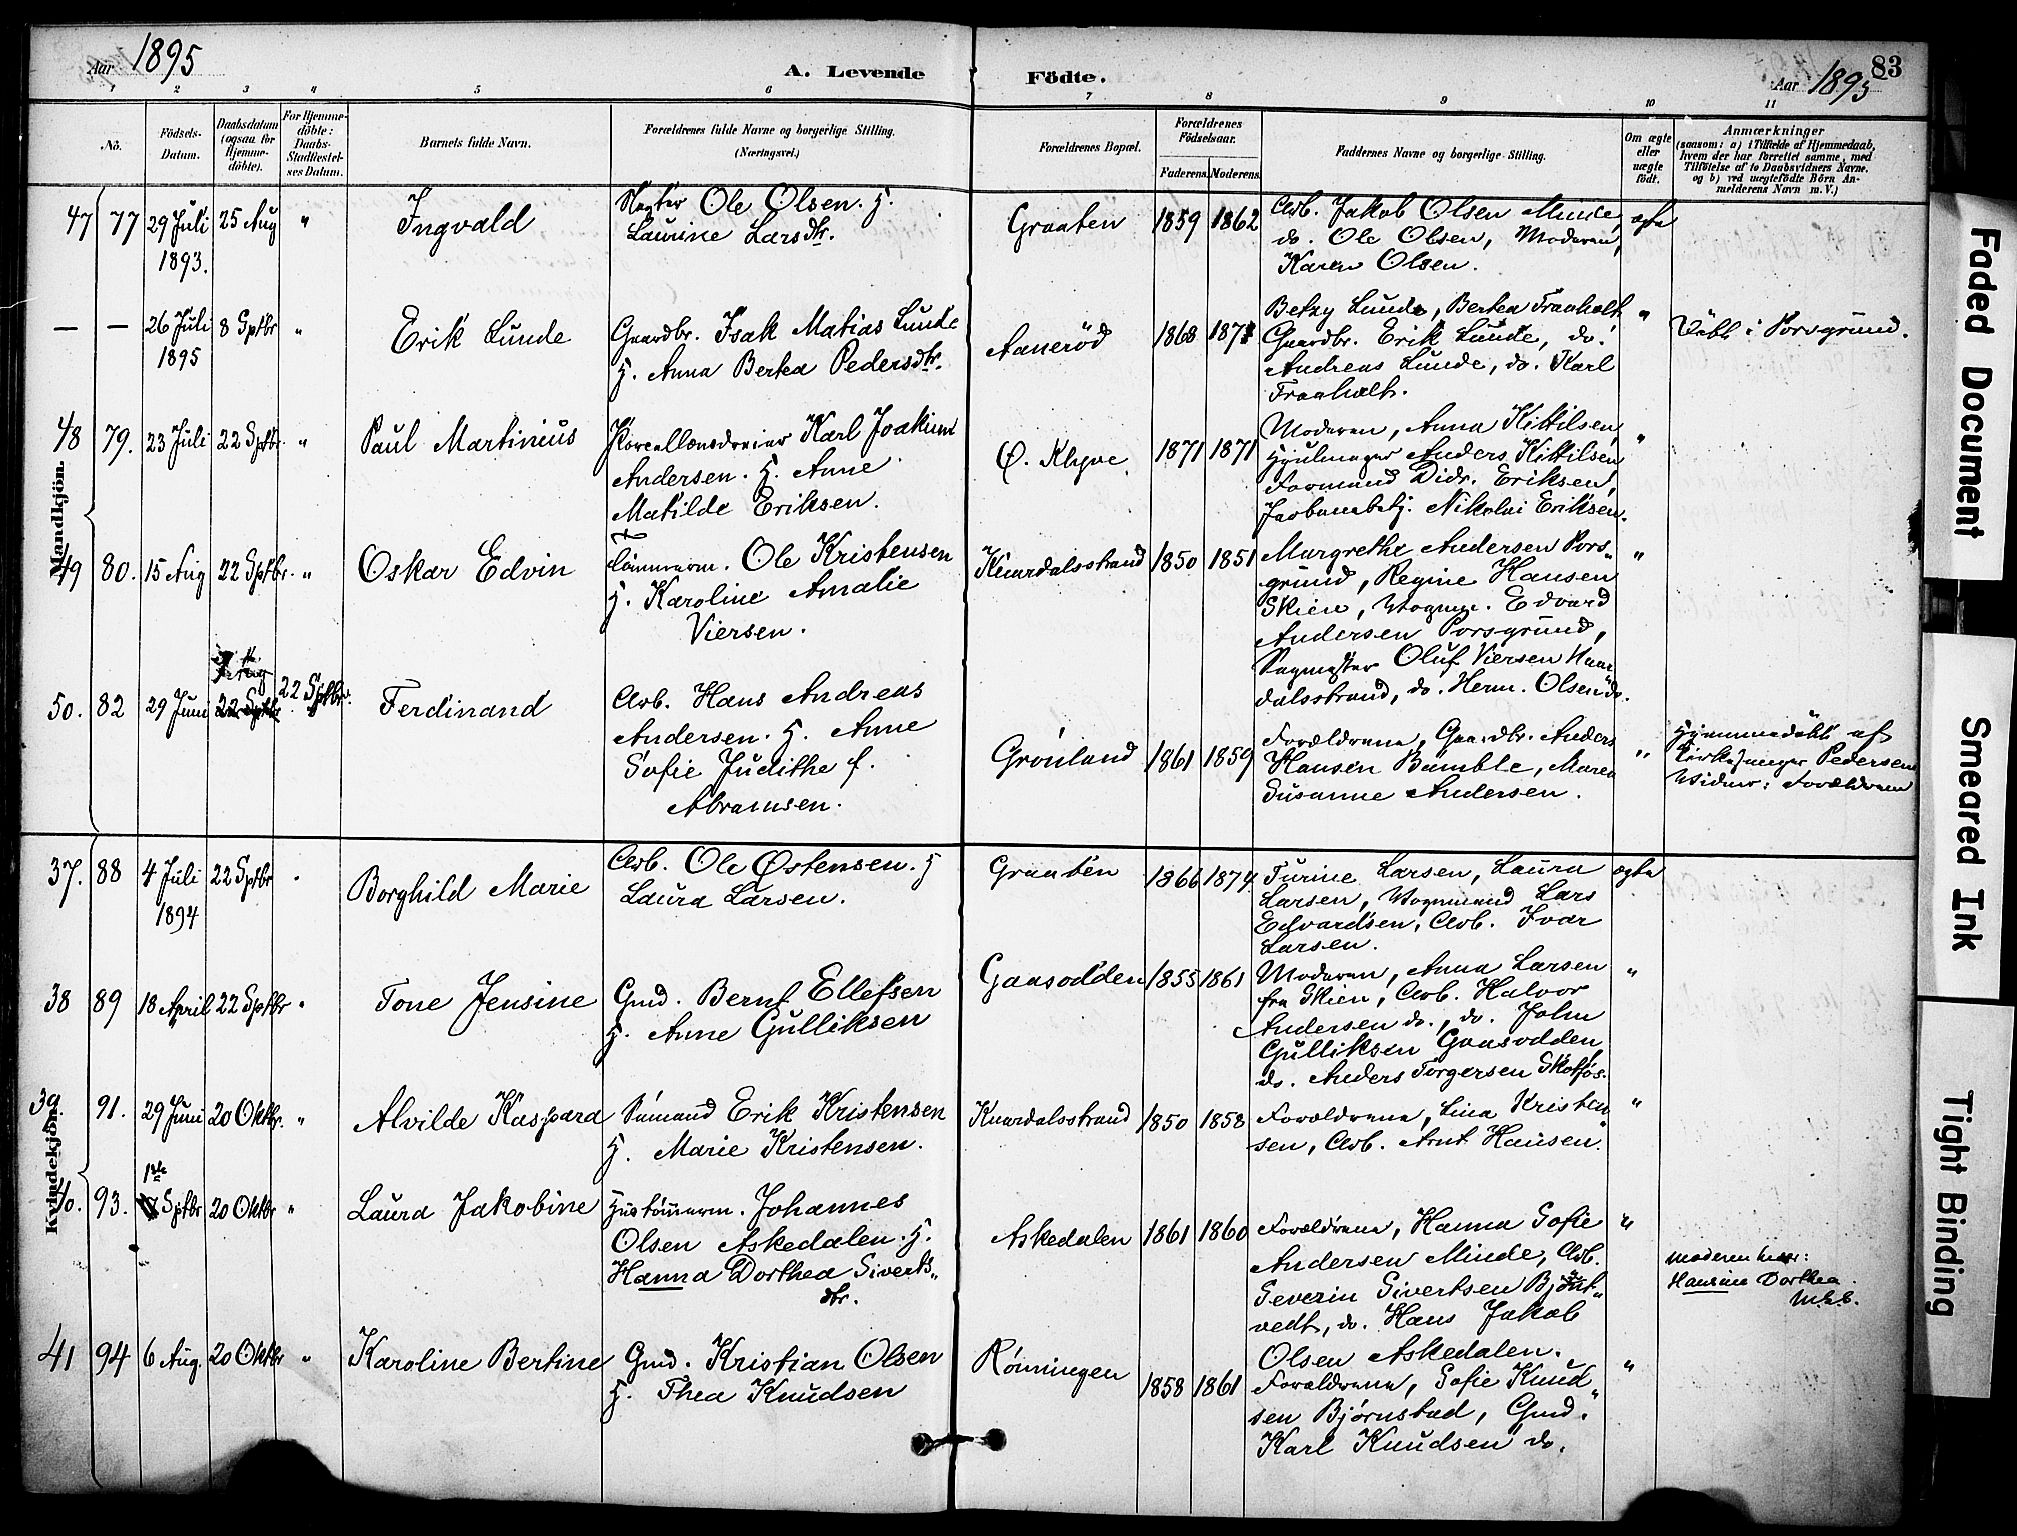 Aar 1895
A. Levende Födte.
Aar 1895
83
1 2 3 4 5 6 7 8 9 10 11
No.
Födsels-Datum.
Daabsdatum (ogsaa for Hjemme-döbte).
For Hjemme-döbte: Daabs-Stadfæstel-ses Datum.
Barnets fulde Navn.
Forældrenes fulde Navne og borgerlige Stilling. (Næringsvei.)
Forældrenes Bopæl.
Forældrenes Födselsaar.
Faderens. Moderens.
Faddernes Navne og borgerlige Stilling.
Om ægte eller uægte födt.
Anmærkninger
(saasom: a) i Tilfælde af Hjemmedaab, hvem der har forrettet samme, med Tilföielse af to Daabsvidners Navne, og b) ved uægtefödte Börn An-melderens Navn m. V.)
Mandkjön.
47 77 29 Juli 1893. 25 Aug " Ingvald
Ole Olsen. H.
Laurine Larsdtr.
Graaten 1859 1862
Arb. Jakob Olsen Minde,
do. Ole Olsen, Moderen,
Karen Olsen.
ægte
— — 26 Juli 1895 8 Sptbr " Erik Lunde
Gaardbr. Isak Matias Lunde
H. Anna Bertea Pedersdtr.
Aanerød 1868 1871
Betzy Lunde, Bertea Fraaholt
Gaardbr. Erik Lunde, do.
Andreas Lunde, do. Karl
Fraaholt.
"
Døbt i Porsgrund.
48 79. 23 Juli 22 Sptbr. " Paul Martinius
Porcellænsdreier Karl Joakim
Andersen. H. Anne
Matilde Eriksen.
Ø. Klyve. 1871 1871
Moderen, Anna Kittilsen,
Hjulmager Anders Kittilsen
Formand Didr. Eriksen,
Jærbanebetj. Nikolai Eriksen.
"
49 80. 15 Aug 22 Sptbr. " Oskar Edvin
Tømmerm. Ole Kristensen
H. Karoline Amalie
Viersen.
Knardalsstrand 1850 1851
Margrethe Andersen Pors-
grund, Regine Hansen
Skien, Vognm. Edvard
Andersen Porsgrund,
Sagmester Oluf Viersen Knar
dalsstrand, do. Herm. Olsen do.
"
50. 82 29 Juni 7 Aug 22 Sptbr 22 Sptbr. Ferdinand
Arb. Hans Andreas
Andersen. H. Anne
Sofie Judithe f.
Abramsen.
Grønland 1861 1859
Forældrene, Gaardbr. Anders
Hansen Bamble, Maren
Susanne Andersen.
"
Hjemmedøbt af
Kirkesanger Pedersen
Vidner: Forældrene
Kvindekjön.
37. 88 4 Juli 1894 22 Sptbr " Borghild Marie
Arb. Ole Østensen. H
Laura Larsen.
Graaten 1866 1874
Turine Larsen, Laura
Larsen, Vognmand Lars
Edvardsen, Arb. Ivar
Larsen.
ægte
38 89 18 April 22 Sptbr " Tone Jensine
Gmd. Bernt Ellefsen
H. Anne Gulliksen
Gaasodden 1855 1861
Moderen, Anna Larsen
fra Skien, Arb. Halvor
Andersen do., do. John
Gulliksen Gaasodden,
do. Anders Torgersen Skotfos.
"
39 91. 29 Juni 20 Oktbr. " Alvilde Kaspara
Sømand Erik Kristensen
H. Marie Kristensen.
Knardalsstrand 1850 1858
Forældrene, Lina Kristen
sen, Arb. Arnt Hansen.
"
40. 93. 1ste Sptbr 20 Oktbr " Laura Jakobine
Hustømmerm. Johannes
Olsen Askedalen. H.
Hanna Dorthea Siverts-
dtr.
Askedalen 1861 1860
Forældrene, Hanna Sofie
Andersen Minde, Arb.
Severin Sivertsen Bjørnt-
vedt, do. Hans Jakob
Olsen Askedalen.
"
Moderen
Hansine Dorthea.
41 94 6 Aug. 20 Oktbr " Karoline Bertine
Gmd. Kristian Olsen
H. Thea Knudsen
Rønningen 1858 1861
Forældrene, Sofie Knud-
sen Bjørnstad, Gmd.
Karl Knudsen do.
"
Faded Document
Smeared Ink
Tight Binding